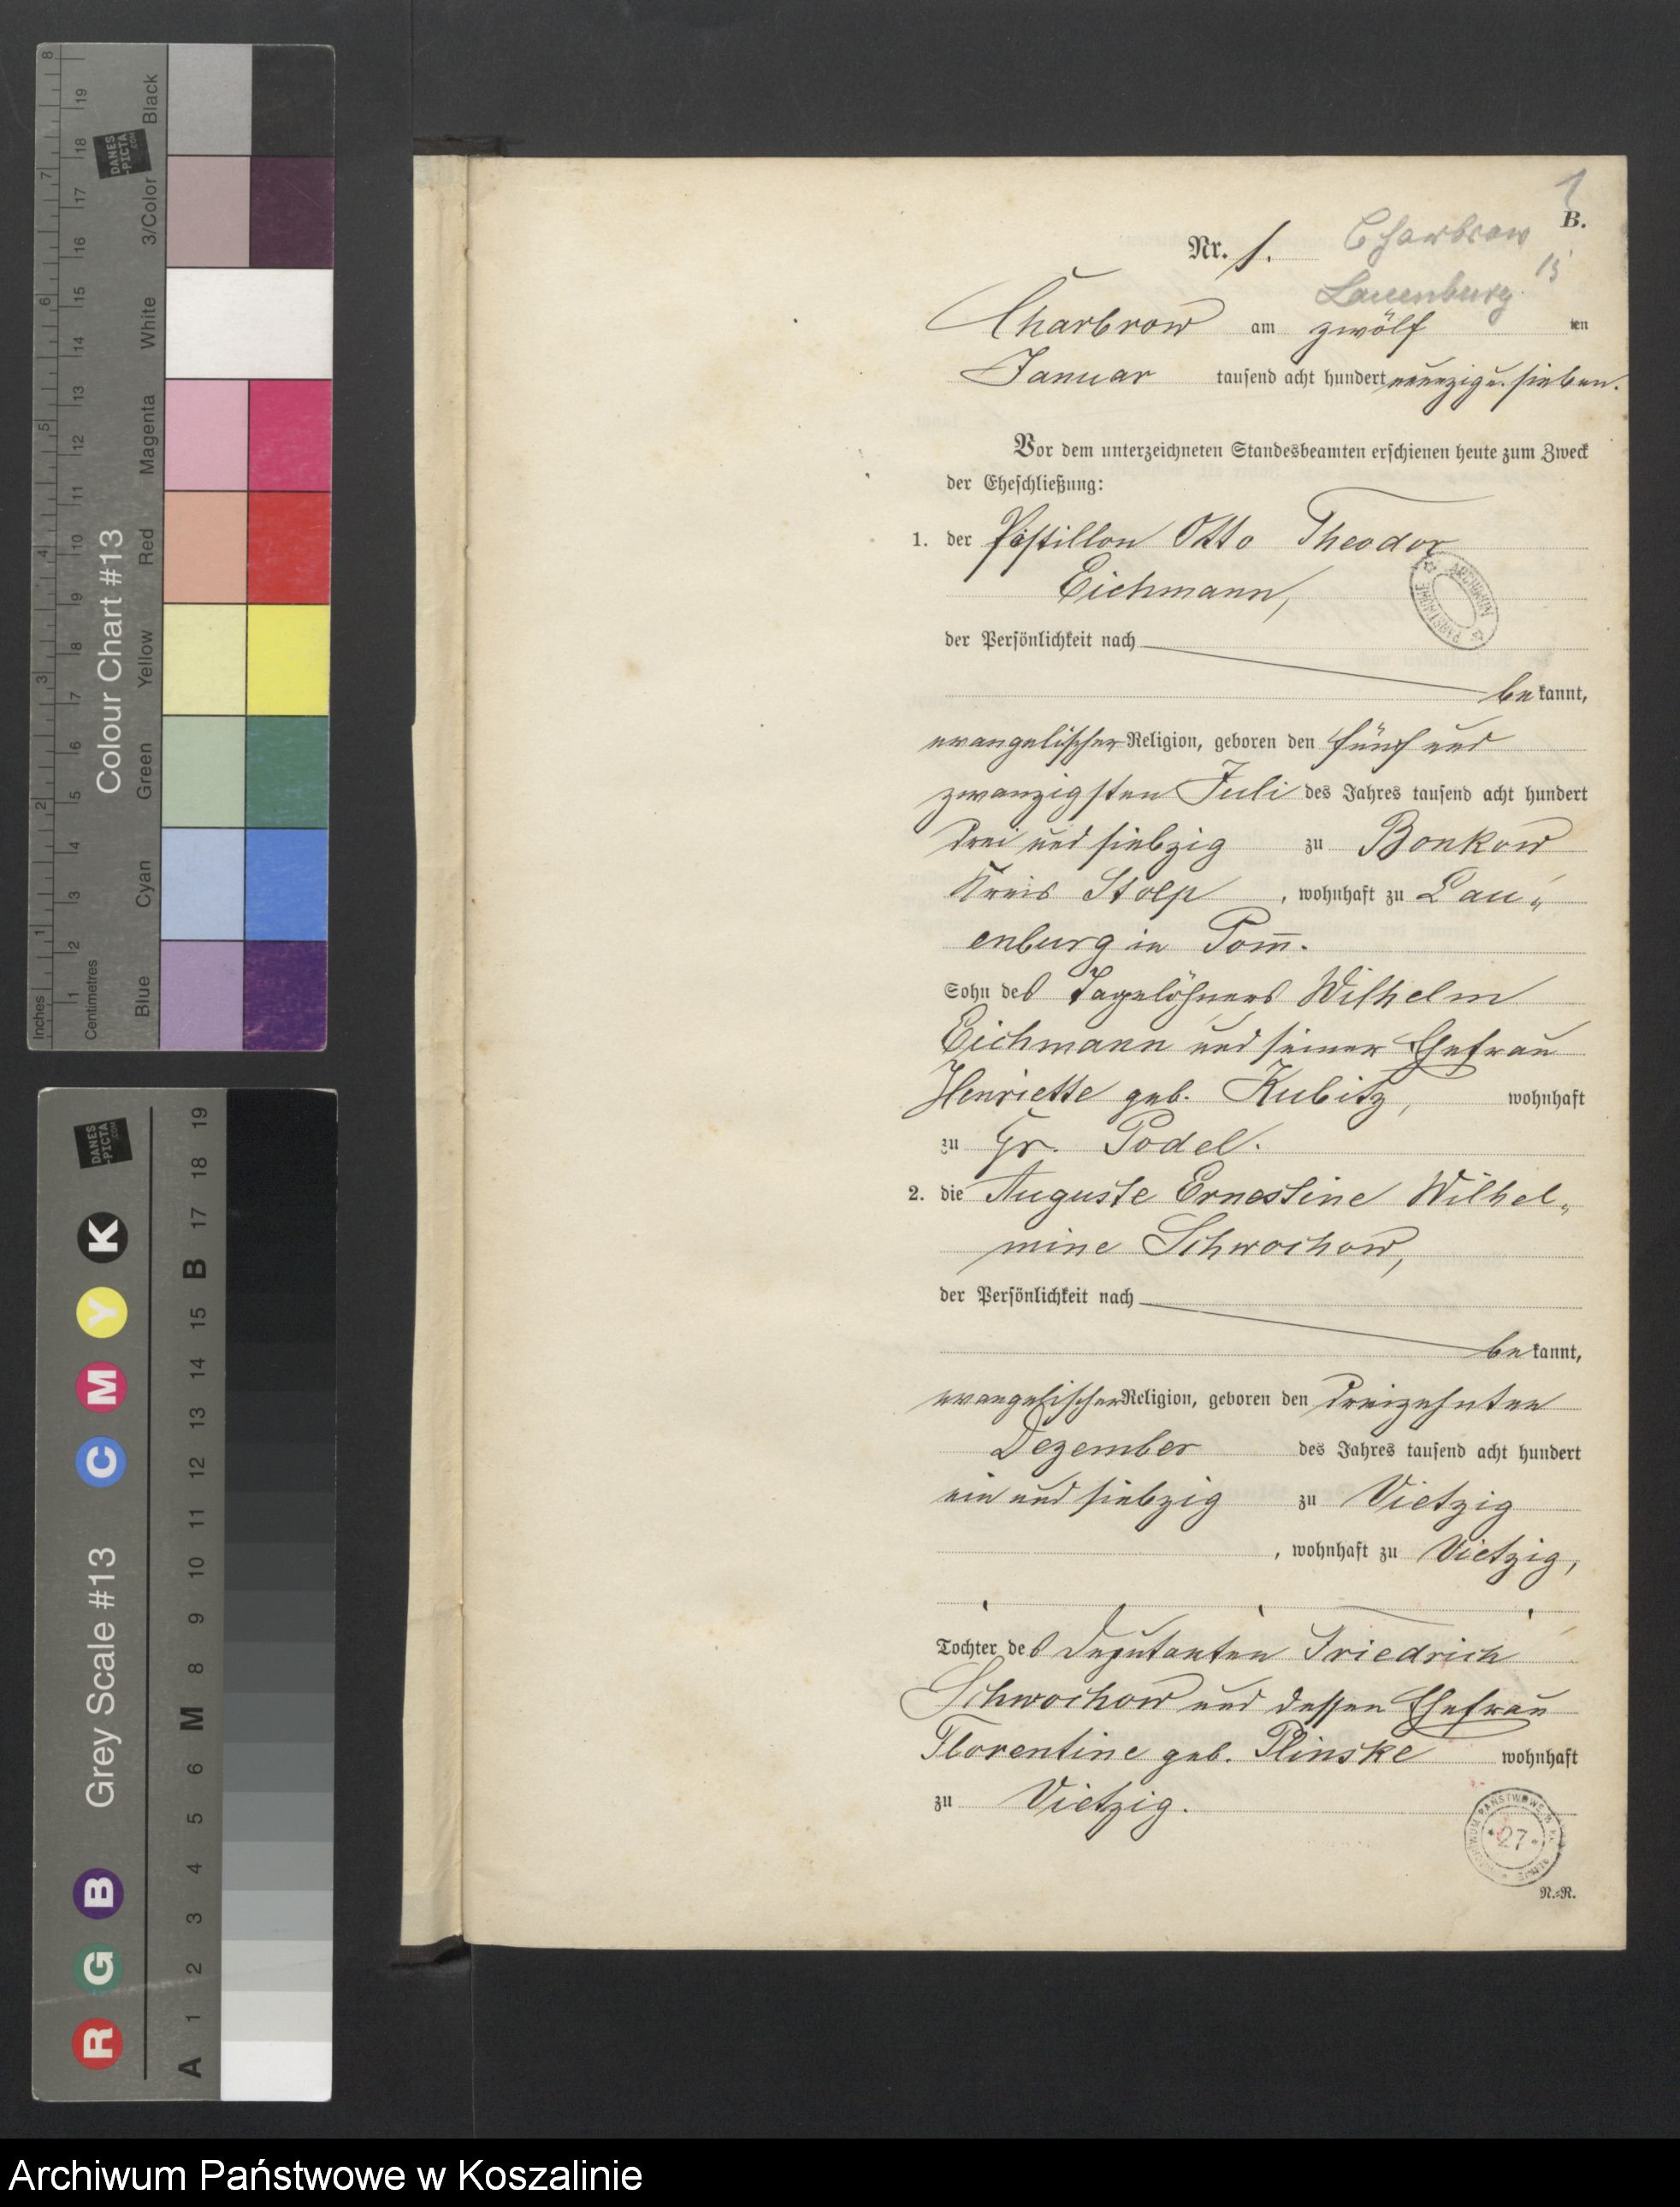 1
B.
Nr. 1.
Charbrow
Lauenburg
15
Charbrow am zwölf ten
Januar tausend acht hundert neunzig u. sieben.
Vor dem unterzeichneten Standesbeamten erschienen heute zum Zweck
der Eheschließung:
1. der Postillon Otto Theodor
Eichmann,
der Persönlichkeit nach
be kannt,
evangelischer Religion, geboren den fünf und
zwanzigsten Juli des Jahres tausend acht hundert
drei und siebzig zu Bonkow
Kreis Stolp, wohnhaft zu Lau„
enburg in Pom̅.
Sohn des Tagelöhners Wilhelm
Eichmann und seiner Ehefrau
Henriette geb. Kubitz, wohnhaft
zu Gr. Podel.
2. die Auguste Ernestine Wilhel„
mine Schwochow,
der Persönlichkeit nach
be kannt,
evangelischer Religion, geboren den dreizehnten
Dezember des Jahres tausend acht hundert
ein und siebzig zu Vietzig
, wohnhaft zu Vietzig,
Tochter des Deputanten Friedrich
Schwochow und dessen Ehefrau
Florentine geb. Plinske wohnhaft
zu Vietzig.
27
N.=N.
ARCHIWUM PAŃSTWOWE
Colour Chart #13
Inches
1 2 3 4 5 6 7 8
Centimetres
1 2 3 4 5 6 7 8 9 10 11 12 13 14 15 16 17 18 19
Blue Cyan Green Yellow Red Magenta White 3/Color Black
DANES
-PICTA
.COM
Grey Scale #13
R G B C M Y K
A 1 2 3 4 5 6 M 8 9 10 11 12 13 14 15 B 17 18 19
DANES
-PICTA
.COM
Archiwum Państwowe w Koszalinie